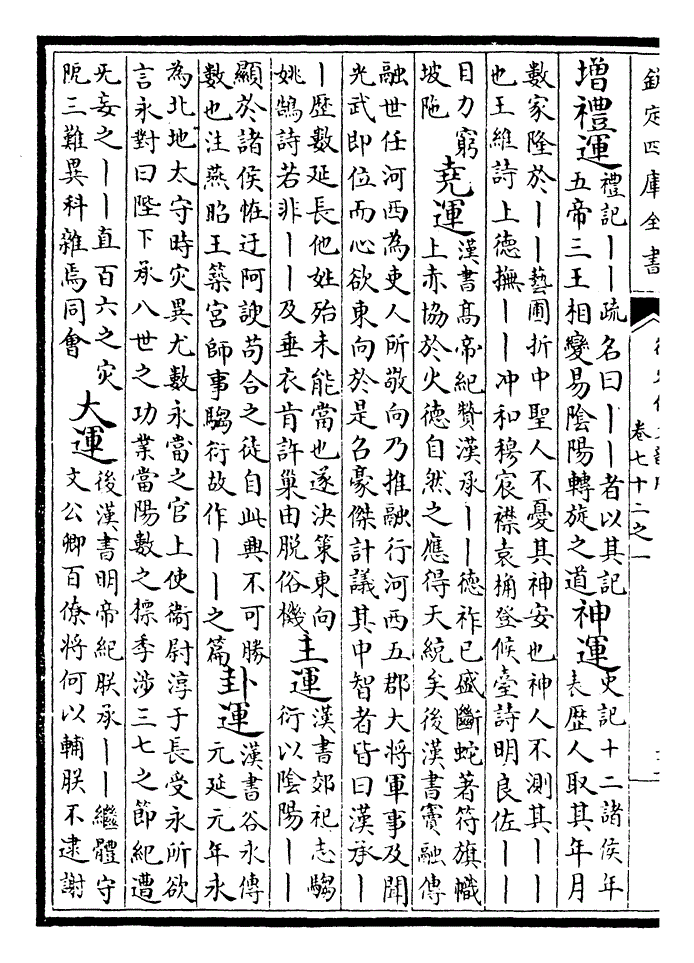 欽定四庫全書
卷七十二之一
增禮運
禮記丨丨疏名曰丨丨者以其記
五帝三王相變易陰陽轉旋之道
神運
史記十二諸侯年
表歷人取其年月
數家隆於丨丨藝圃折中聖人不憂其神安也神人不測其丨丨
也王維詩上德撫丨丨冲和穆宸襟袁桷登候臺詩明良佐丨丨
目力窮
坡陁
堯運
漢書髙帝紀贊漢承丨丨德祚已盛斷蛇著符旗幟
上赤協於火德自然之應得天統矣後漢書竇融傳
融世任河西為吏人所敬向乃推融行河西五郡大將軍事及聞
光武即位而心欲東向於是召豪傑計議其中智者皆曰漢承丨
丨歷數延長他姓殆未能當也遂決策東向
姚鵠詩若非丨丨及垂衣肯許巢由脱俗機
主運
漢書郊祀志騶
衍以陰陽丨丨
顯於諸侯恠迂阿諛苟合之徒自此興不可勝
數也注燕昭王築宮師事騶衍故作丨丨之篇
卦運
漢書谷永傳
元延元年永
為北地太守時灾異尤數永當之官上使衞尉淳于長受永所欲
言永對曰陛下承八世之功業當陽數之標季涉三七之節紀遭
旡妄之丨丨直百六之灾
阸三難異科雜焉同會
大運
後漢書明帝紀朕承丨丨繼體守
文公卿百僚將何以輔朕不逮謝